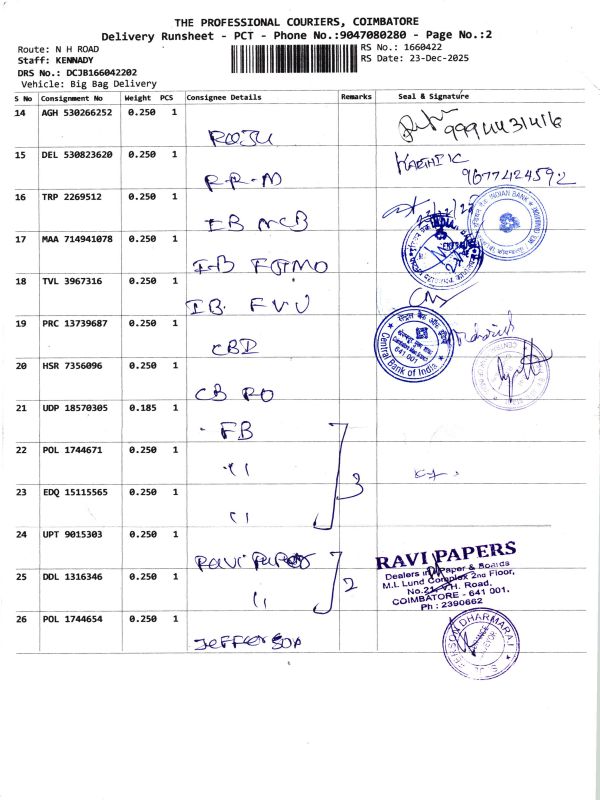 THE PROFESSIONAL COURIERS, COIMBATORE
Delivery Runsheet - PCT - Phone No.:9047080280 - Page No.:2
Route: N H ROAD
RS No.: 1660422
Staff: KENNADY
RS Date: 23-Dec-2025
DRS No.: DCJB166042202
Vehicle: Big Bag Delivery
S No Consignment No Weight PCS Consignee Details Remarks Seal & Signature
14 AGH 530266252 0.250 1
ROJU
9994431416
15 DEL 530823620 0.250 1
R-R-M
KARTHIK
9677424592
16 TRP 2269512 0.250 1
IB MCB
INDIAN BANK
17 MAA 714941078 0.250 1
I-B FGMO
18 TVL 3967316 0.250 1
IB. FVU
19 PRC 13739687 0.250 1
CBI
Central Bank of India
641 001
20 HSR 7356096 0.250 1
CB RO
21 UDP 18570305 0.185 1
FB
22 POL 1744671 0.250 1
"
3
23 EDQ 15115565 0.250 1
"
24 UPT 9015303 0.250 1
RAVI PAPERS
RAVI PAPERS
Dealers in Paper & Boards
M.L Lund Complex 2nd Floor,
No.21, V.H. Road,
COIMBATORE - 641 001.
Ph : 2390662
25 DDL 1316346 0.250 1
"
2
26 POL 1744654 0.250 1
Jefferson
DHARMARAJ